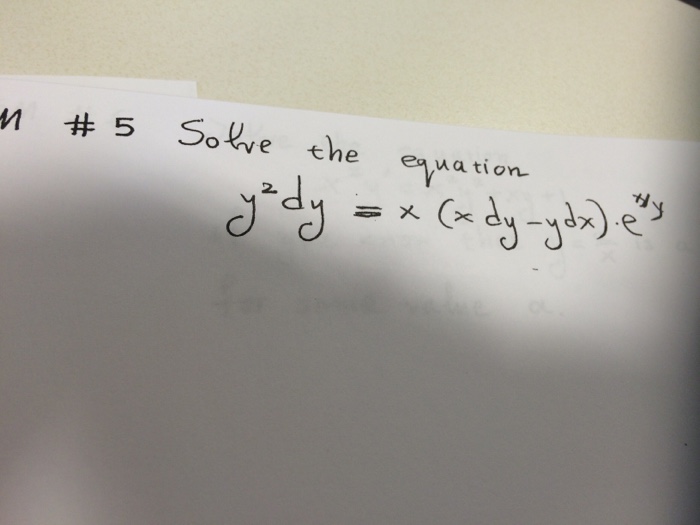 M # 5 Solve the equation
y² dy = x (x dy - y dx) · e^x/y